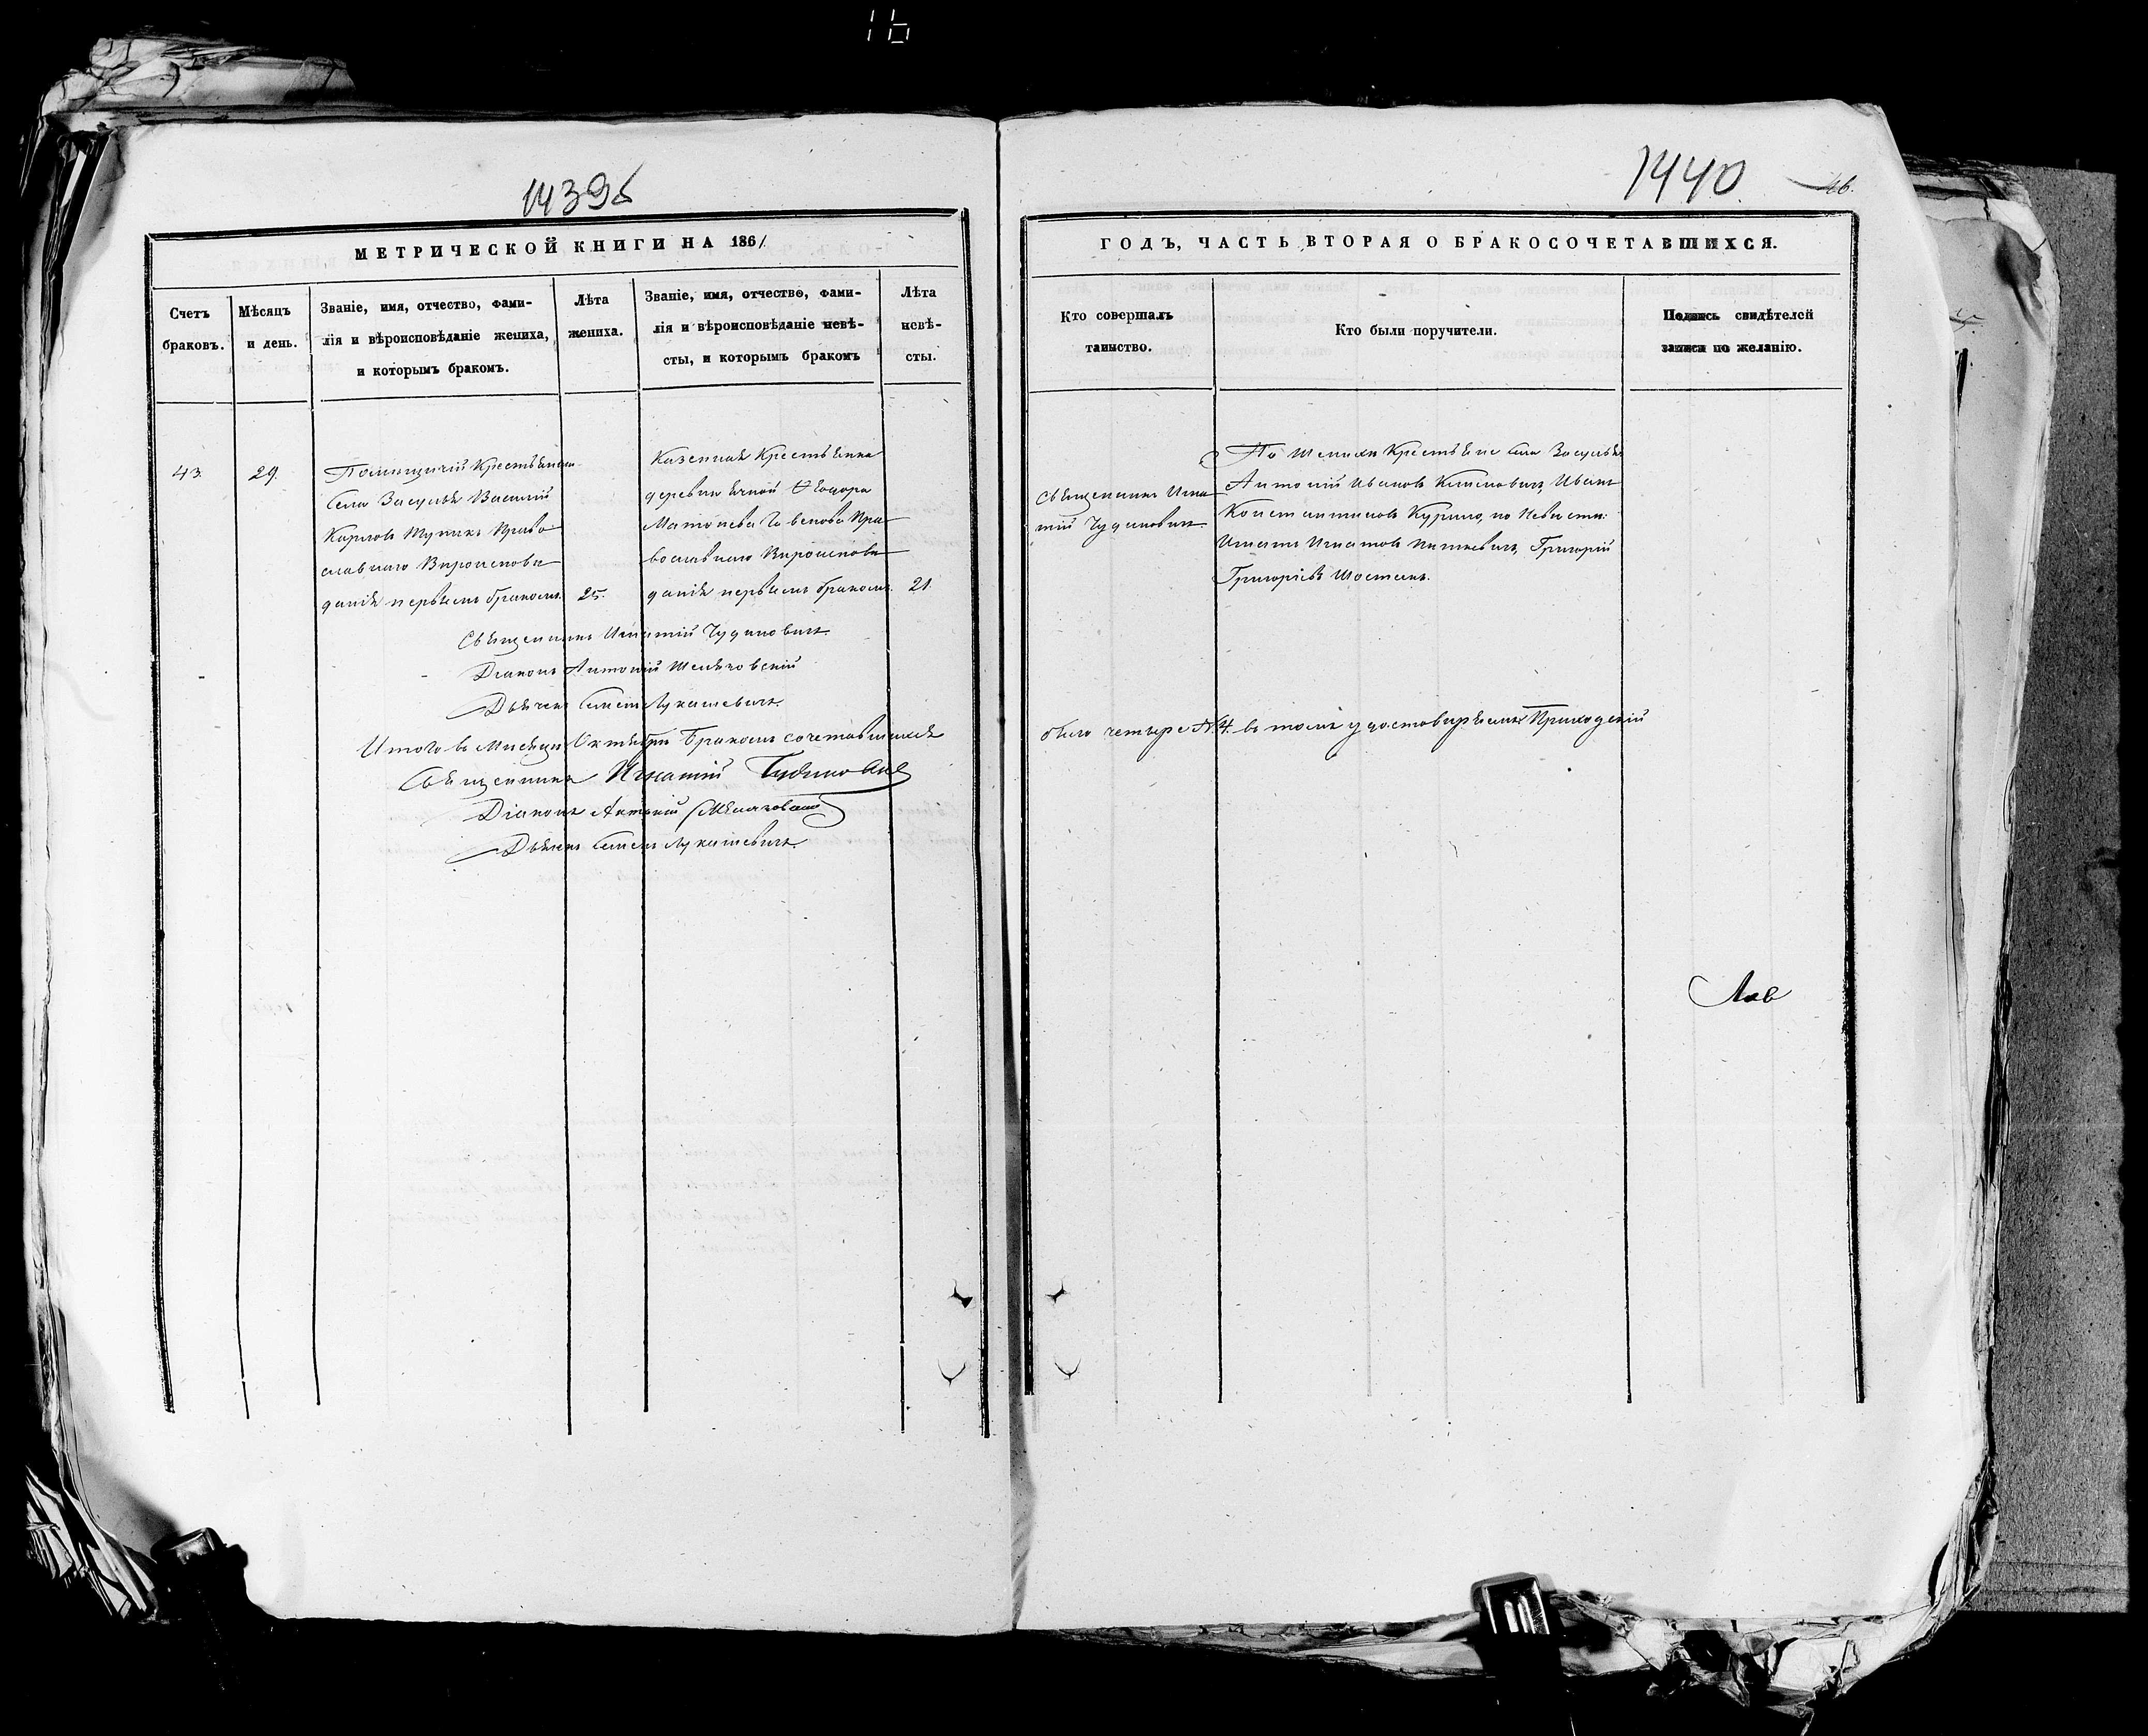 1439б
МЕТРИЧЕСКОЙ КНИГИ НА 1861
Счетъ
браковъ.
Мѣсяцъ
и день.
Званіе, имя, отчество, фами-
лія и вѣроисповѣданіе жениха,
и которымъ бракомъ.
Лѣта
жениха.
Званіе, имя, отчество, фами-
лія и вѣроисповѣданіе невѣ-
сты, и которымъ бракомъ
Лѣта
невѣ-
сты.
43.
29.
Помѣщичій Крестьянинъ
Села Засулья Василій
Карповъ Тупикъ Право
славнаго Вѣроисповѣ
данія первымъ бракомъ.
25.
Казенная Крестьянка
деревни Ячной Ѳеодора
Матѳеева Пра
вославнаго Вѣроисповѣ
данія первымъ бракомъ.
21.
Священникъ Игнатій Чудиновичъ.
Діаконъ Антоній
Дьячекъ Семенъ Лукашевичъ.
Итого въ Мѣсяцѣ Октябрѣ бракомъ сочетавшихся
Священникъ Игнатій Чудиновичъ
Діаконъ Антоній
Дьячекъ Семенъ Лукашевичъ.
1440.
46.
ГОДЪ, ЧАСТЬ ВТОРАЯ О БРАКОСОЧЕТАВШИХСЯ.
Кто совершалъ
таинство.
Кто были поручители.
Подпись свидѣтелей
записи по желанію.
Священникъ Игна
тій Чудиновичъ.
По Женихѣ Крестьяне села Засулья
Антоній Ивановъ Климовичъ, Иванъ
Константиновъ Курило, по Невѣстѣ:
Игнатъ Игнатовъ Григорій
Григоріевъ Шостакъ.
было четыре № 4. въ томъ удостовѣряемъ Приходскій